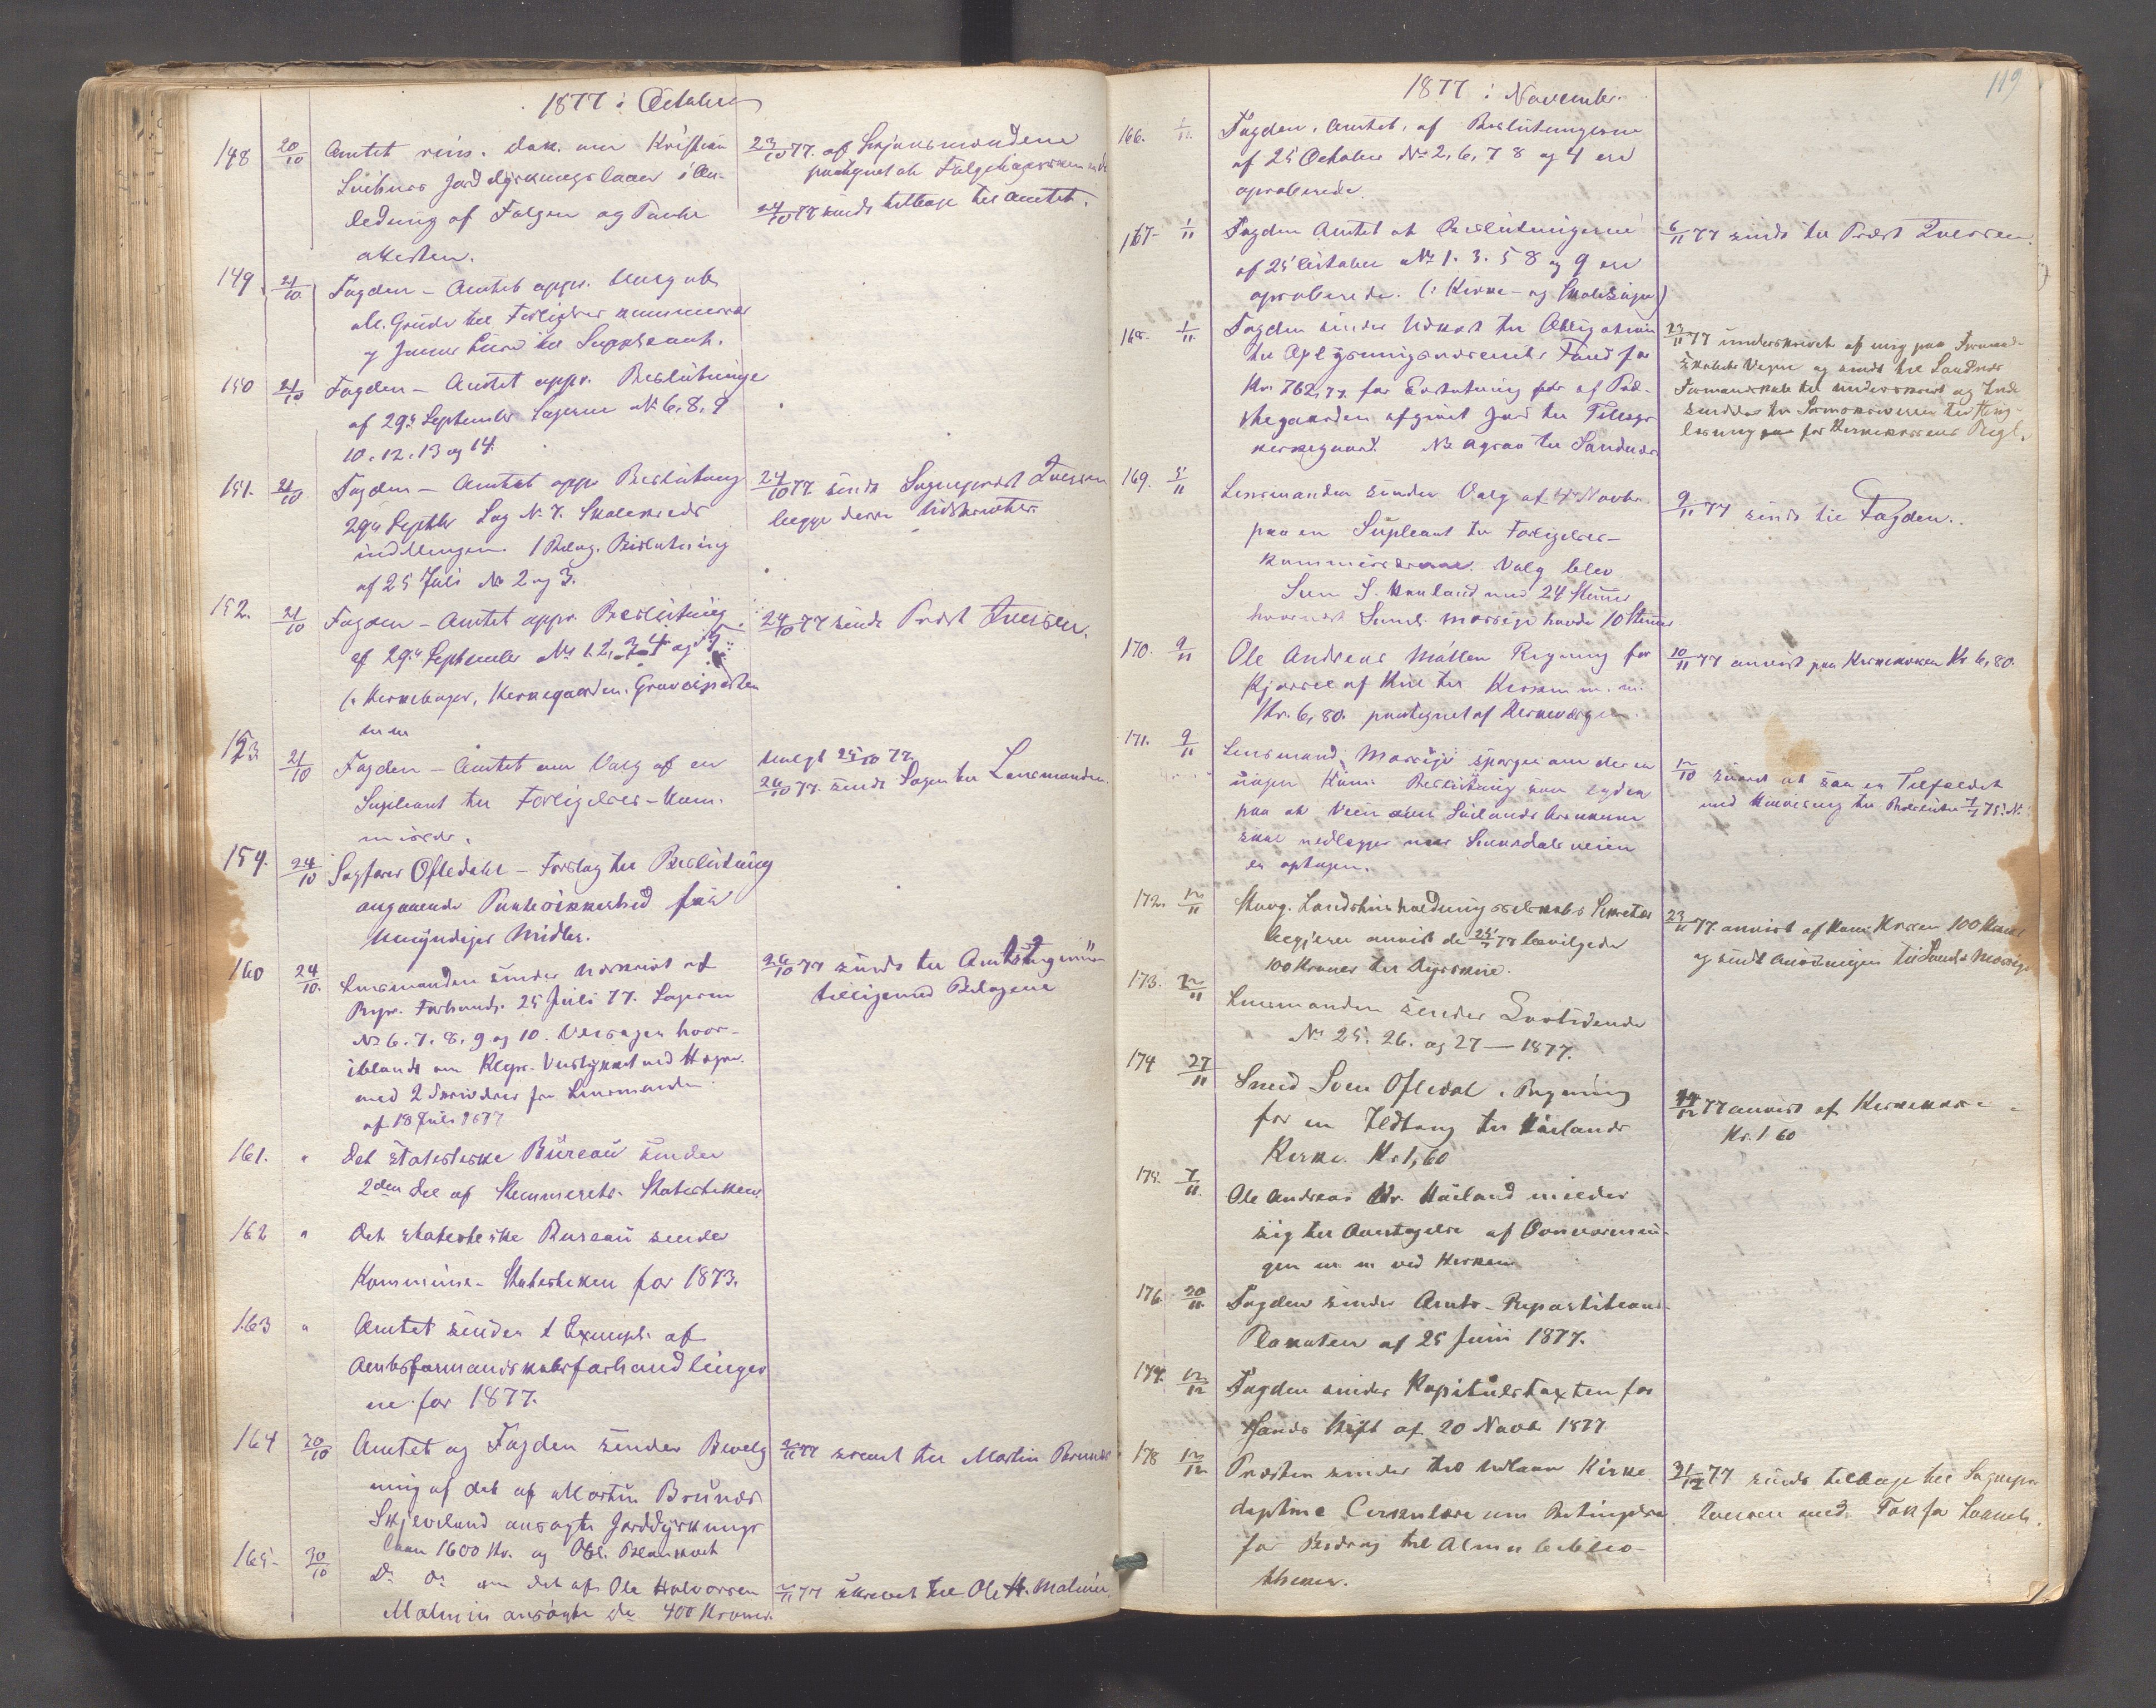 1877 i October
148 20/10 Amtet rem. dok. om Kristian
Jorddyrkningslaan i An-
ledning af Følgen og Taxt-
akten.
23/10 77. af Skjønsmændene
24/10 77 sendt tilbage til Amtet.
149 21/10 Fogden - Amtet appr. Valg af
M. Grude til Forligelseskommissær
og Jonas Lura til Suppleant.
150 21/10 Fogden - Amtet appr. Beslutninge
af 29de September Sagerne No 6, 8, 9
10, 12, 13 og 14.
151. 21/10 Fogden - Amtet appr Beslutning
29de Septbr Sag No 7. Skolekreds
inddelingen. 1 Bilag. Beslutning
af 25 Juli No 2 og 3.
24/10 77 sendt Sognepræst Iversen
begge disse Udskrifter.
152. 21/10 Fogden - Amtet appr. Beslutning
af 29de September No 1. 2, 3 4 og 5
(: Kirkebøger, Kirkegaarden, Graveriposten
m m
24/10 77 sendt Præst Iversen.
153 21/10 Fogden - Amtet om Valg af en
Supleant til Forligelses-Kom-
missær.
Valgt 25/10 77.
26/10 77. sendt Sagen til Lensmanden.
154. 24/10 Sagfører Oftedahl - Forslag til Beslutning
angaaende Pantesikkerhed for
Umyndiges Midler.
160 24/10. Lensmanden sender Udskrift af
Repr. Forhandl. 25 Juli 77. Sagerne
No 6. 7. 8. 9 og 10. Veisagen hvor-
iblandt om
med 2 Skrivelser fra Lensmanden
af 18 Juli 1877
26/10 77 sendt til Amtsingeniør
tilligemed Bilagene
161. " Det statistiske Büreau sender
2den Del af Stemmerets-Statistiken.
162 " Det statistiske Bureau sender
Kommune-Statistiken for 1873.
163 " Amtet sender 1 Exempl. af
Amtsformandskabsforhandlinger
ne for 1877.
164 30/10 Amtet og Fogden sender Bevilg
ning af det af Martin Brunes
Skjeveland ansøgte Jorddyrkings
laan 1600 Kr. og Obl. Blanket
2/11 77 skrevet til Martin Brunes
165- 30/10 Do Do om det af Ole Halvorsen
Malmin ansøgte Do 400 Kroner.
2/11 77 skrevet til Ole H. Malmin.
1877 i November.
119
166. 1/11. Fogden, Amtet, af Beslutningerne
af 25 October No 2, 6, 7 8 og 4 ere
aproberede.
167- 1/11 Fogden Amtet at Beslutningerne
af 25 October No 1. 3. 5 8 og 9 ere
aproberede. (: Kirke- og Skolesager)
6/11 77 sendt til Præst Iversen.
168. 1/11 Fogden sender Udkast til Obligation
til Oplysningsvæsenets Fond for
Kr. 762,77 for Erstatning for af Præ-
stegaarden afgivet Jord til
kirkegaard.
23/11 77 underskrevet af mig paa Formand-
skabets Vegne og sendt til Sandnes
Formandskab til Underskrift og Ind
sendelse til Sorenskriveren til Ting-
læsning for Kirkekassens Regl.
169. 5/11 Lensmanden sender Valg af 4de Novbr.
paa en Supleant til Forligelses-
kommissærene. Valg blev
Sven S. Hauland med 24 Stemmer
hvornæst Lensm. Mossige havde 10 Stemmer
9/11 77 sendt til Fogden.
170. 9/11 Ole Andreas Mállen Regning for
Kjørsel af til Kirken m. m.
Kr. 6,80. paategnet af Kirkeværgen
10/11 77 anvist paa Kirkekassen Kr 6,80.
171. 9/11 Lensmand Mossige spørger om der er
nogen Kom. Beslutning som lyder
paa at Veien over Høilands
skal nedlægges naar veien
er optagen.
12/10 svaret at saa er Tilfældet
med Henvisning til Beslutn.
172. 12/11 Stavg. Landhusholdningsselskabs Sekretær
begjærer anvist de 25/7 77 bevilgede
100 Kroner til Dyrskue.
23/11 77. anvist af Kom. Kassen 100 Kroner
og sendt Anvisningen til Lensm. Mossige
173. 12/11 Lensmanden sender Lovtidende
No 25. 26. og 27 — 1877.
174 27/11 Smed Sven Oftedal, Regning
for en Ildtang til Høilands
Kirke. Kr 1,60
14/12 77 anvist af Kirkekasse
Kr. 1 60
175. 7/11. Ole Andreas Høiland melder
sig til Overtagelse af Ovnvarmnin-
gen m. m ved Kirken
176. 20/11 Fogden sender Amts-Repartitions-
Plakaten af 25 Juni 1877.
177. 12/12 Fogden sender Kapitelstaxten for
Xsands Stift af 20 Novb. 1877
178 12/12 Præsten sender til Udlaan Kirke
deptmts Cirkulære om Betingelse
for Bidrag til Almuebiblio-
theker.
31/12 77 sendt tilbage til Sognepr
Iversen med Tak for Laanet.